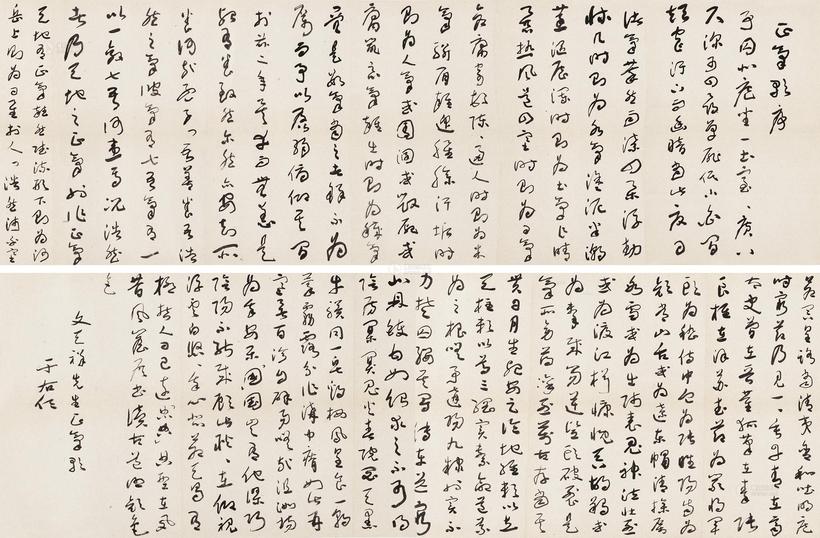 正氣歌序
予囚北庭坐一土室室廣八
尺深可四尋單扉低小白間
短窄汙下而幽暗當此夏日
諸氣萃然雨潦四集浮動
牀几時則為水氣塗泥半潮
蒸漚歷瀾時則為土氣乍晴
暴熱風道四塞時則為日氣
倉腐寄頓陳陳逼人時則為米
氣駢肩雜遝腥臊汗垢時
則為人氣或圊溷或毀屍或
腐鼠惡氣雜出時則為穢氣
疊是數氣當之者鮮不為
厲而予以孱弱俯仰其間
於茲二年矣幸而無恙是
殆有養致然爾然亦安知所
養何哉孟子曰吾善養吾浩
然之氣彼氣有七吾氣有一
以一敵七吾何患焉況浩然
者乃天地之正氣也作正氣
天地有正氣雜然賦流形下則為河
嶽上則為日星於人曰浩然沛乎塞
蒼冥皇路當清夷含和吐明庭
時窮節乃見一一垂丹青在齊
太史簡在晉董狐筆在秦張
良椎在漢蘇武節為嚴將軍
頭為嵇侍中血為張睢陽齒為
顏常山舌或為遼東帽清操厲
冰雪或為出師表鬼神泣壯烈
或為渡江楫慷慨吞胡羯或
為擊賊笏逆豎頭破裂是
氣所旁薄凜烈萬古存當其
貫日月生死安足論地維賴以立
天柱賴以尊三綱實繫命道義
為之根嗟予遘陽九隸也實不
力楚囚纓其冠傳車送窮
北鼎鑊甘如飴求之不可得
陰房闃鬼火春院閟天黑
牛驥同一皂雞棲鳳凰食一朝
蒙霧露分作溝中瘠如此再
寒暑百沴自辟易嗟哉沮洳場
為我安樂國豈有他繆巧
陰陽不能賊顧此耿耿在仰視
浮雲白悠悠我心悲蒼天曷有
極哲人日已遠典型在夙
昔風簷展書讀古道照顏
色
文天祥先生正氣歌
于右任